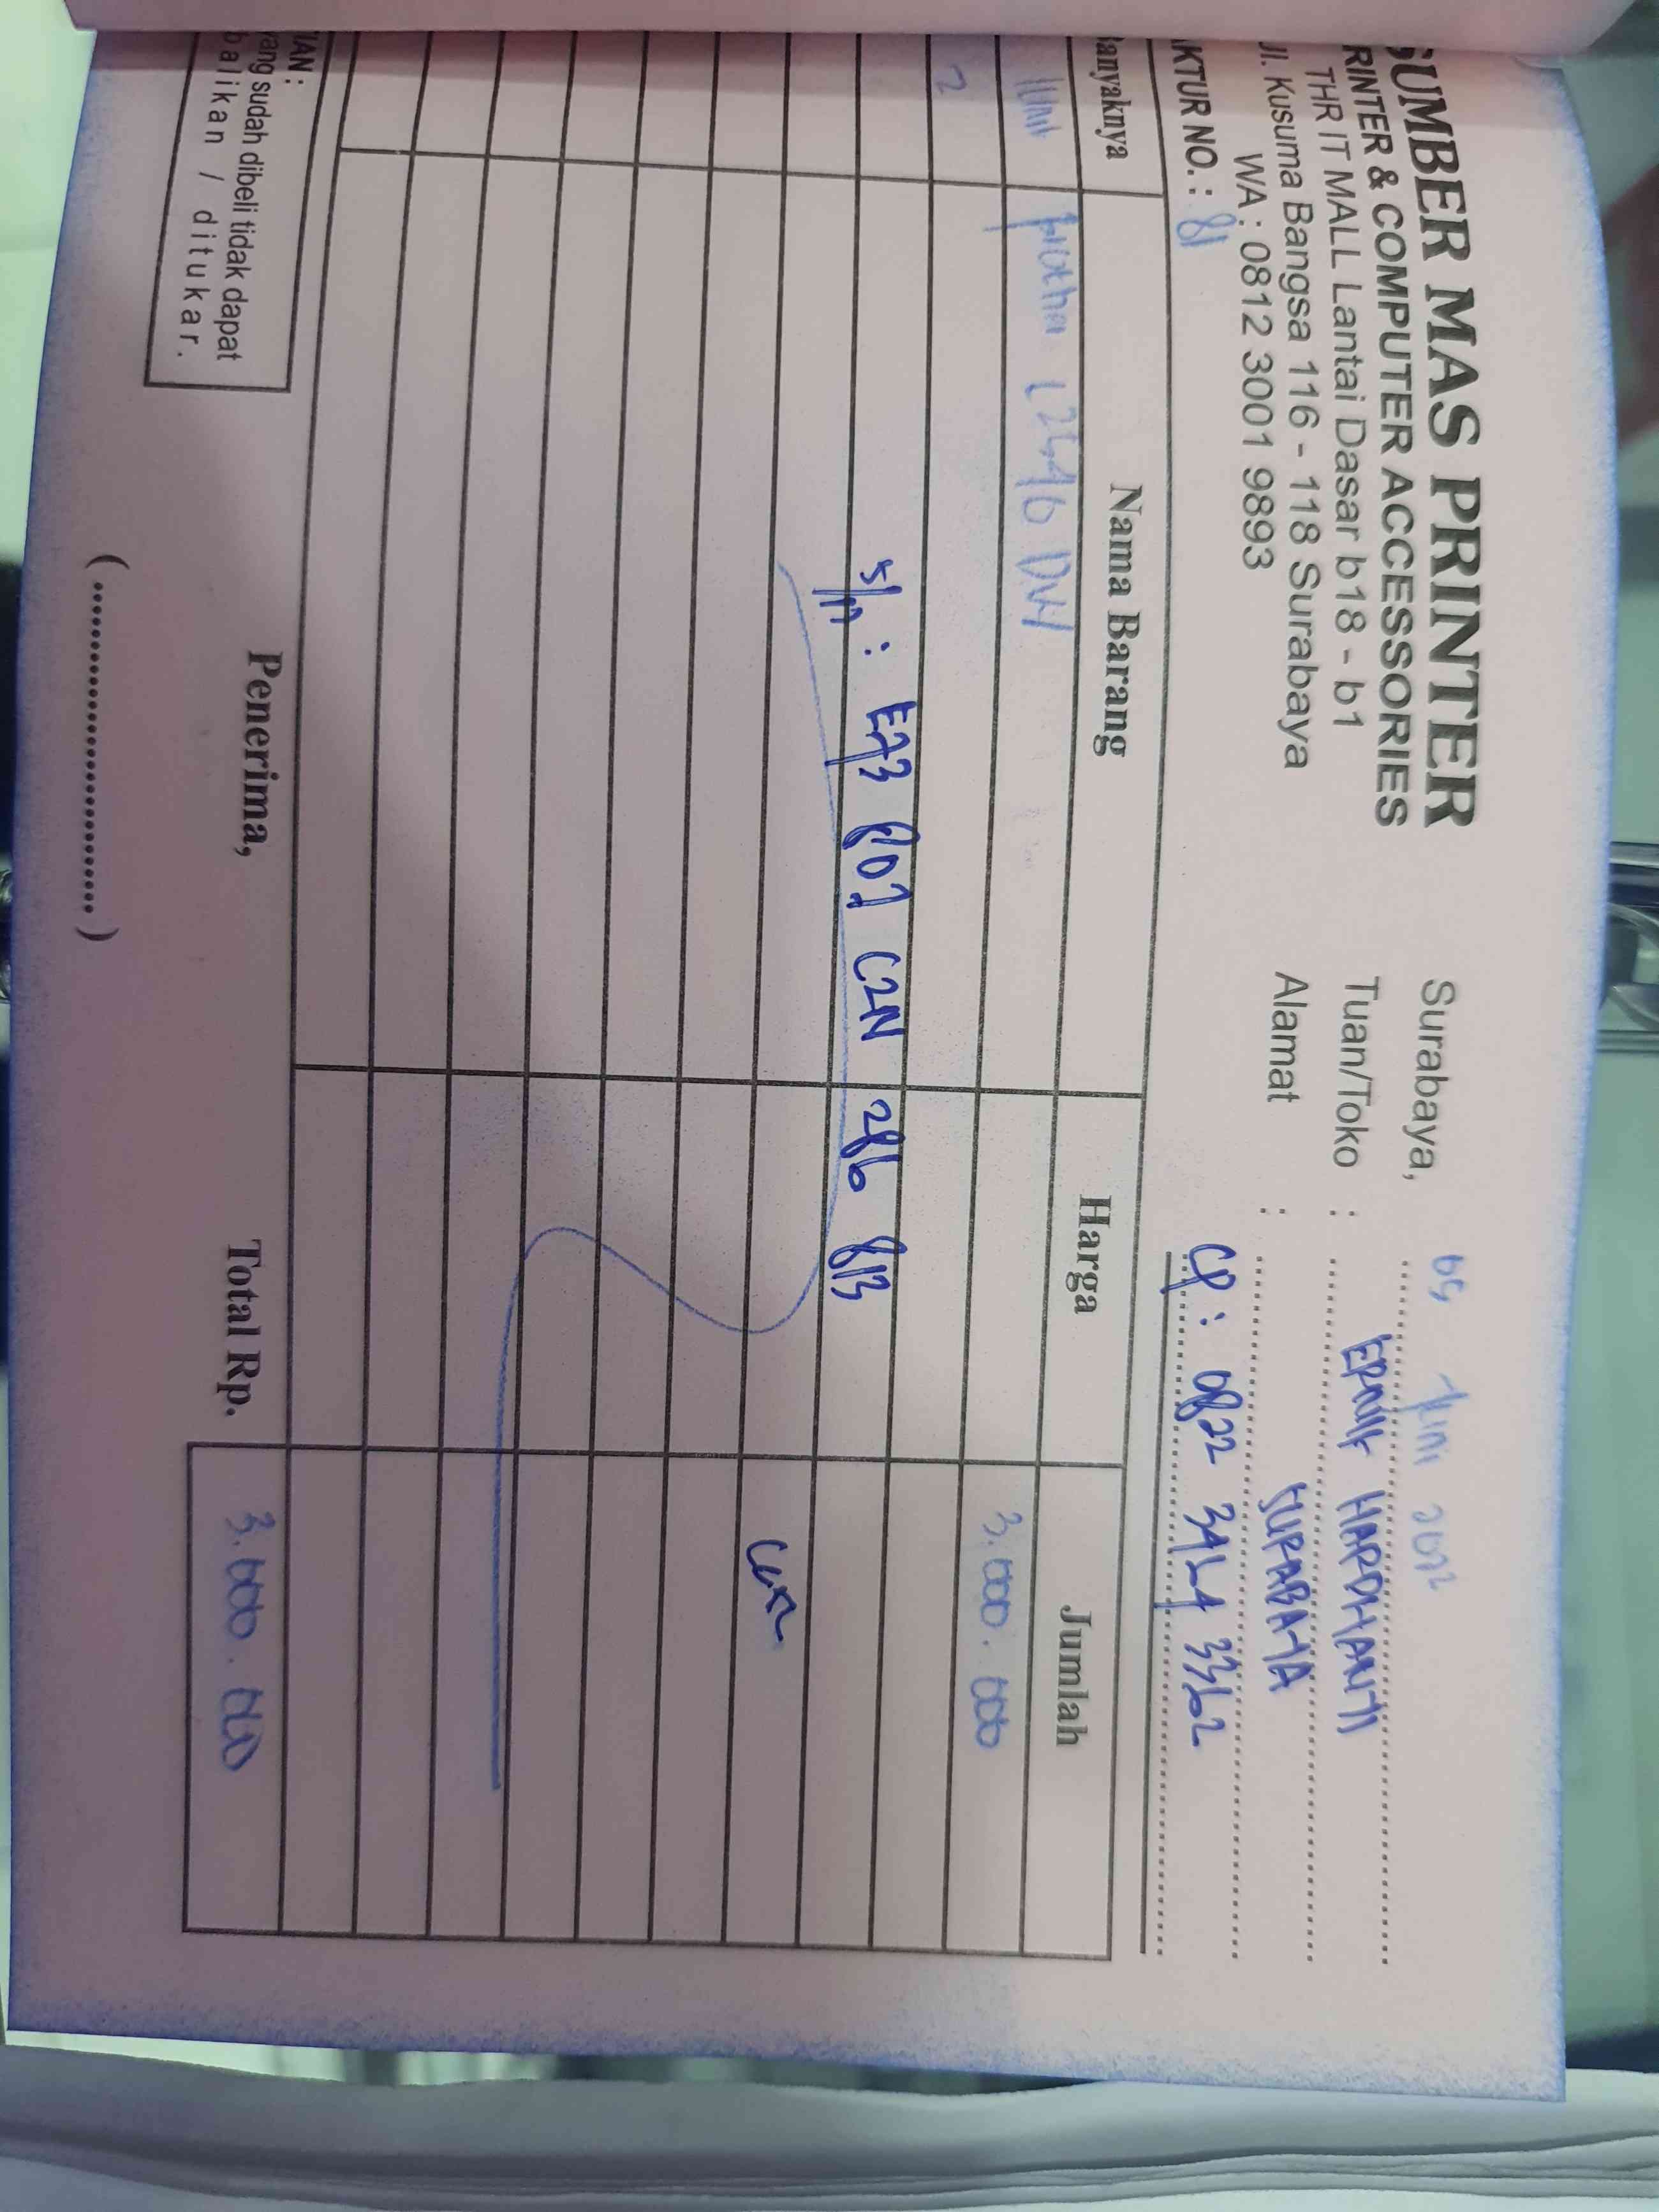 SUMBER MAS PRINTER
RINTER & COMPUTER ACCESSORIES
THR IT MALL Lantai Dasar b18 - b1
Jl. Kusuma Bangsa 116 - 118 Surabaya
WA : 0812 3001 9893
Surabaya, 05 Juni 2022
Tuan/Toko : HARDHANTI
Alamat : SURABAYA
CP : 0822 3454 3362
AKTUR NO. : 81
anyaknya Nama Barang Harga Jumlah
1 Unit Brother L2540 DW 3.000.000
S/N : E73 801 C2N 286 813
3.000.000
IAN :
yang sudah dibeli tidak dapat
balikan / ditukar.
Penerima,
Total Rp. 3.000.000
(..............................)